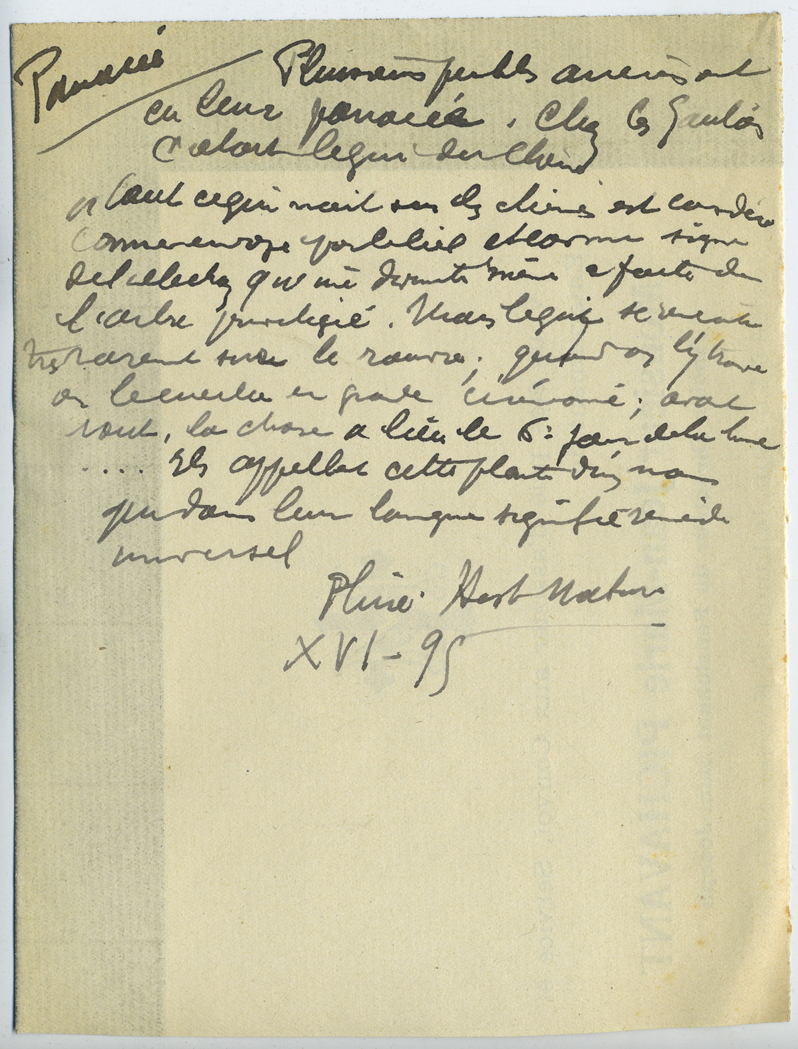 Panacée
Plusieurs peuples anciens ont
eu leur panacée. Chez les Gaulois
c'était le gui du chêne
et tout ce qui nait sur les chênes est considéré
comme envoyé par le ciel et comme signe
de l'élection que le même a faite de
l'arbre privilégié. Mais le gui se rencontre
très rarement sur le rouvre; quand on l'y trouve
on le cueille en grande cérémonie; avant
tout, la chose a lieu le 6e jour de la lune
.... Ils appellent cette plante d'un nom
qui dans leur langue signifie remède
universel
Pline. Hist Nature
XVI-95